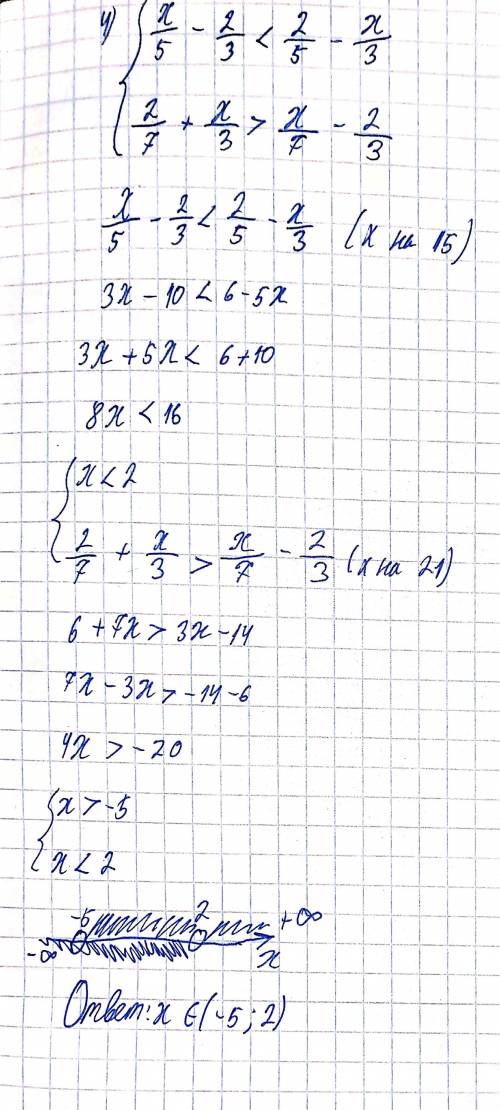 4) { x/5 - 2/3 < 2/5 - x/3
2/7 + x/3 > x/7 - 2/3
x/5 - 2/3 < 2/5 - x/3 (x на 15)
3x - 10 < 6 - 5x
3x + 5x < 6 + 10
8x < 16
{ x < 2
2/7 + x/3 > x/7 - 2/3 (x на 21)
6 + 7x > 3x - 14
7x - 3x > -14 - 6
4x > -20
{ x > -5
x < 2
-∞ -5 2 +∞
x
Ответ: x ∈ (-5; 2)